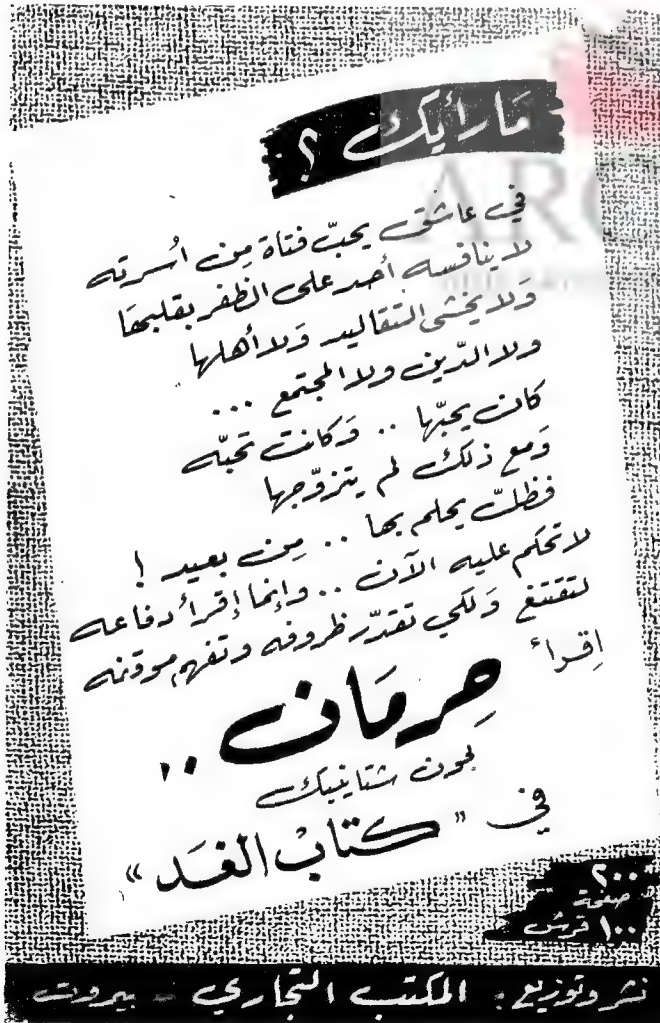 مَا رأيك ؟
في عاشق يحبّ فتاة مِن اُسرته
لا ينافسه أحد على الظفر بقلبها
وَلا يخشى التقاليد وَلا أهلها
ولا الدّين ولا المجتمع ...
كان يحبّها .. وَكانت تحبّه
وَمع ذلك لم يتزوّجها
فظلّ يحلم بها .. مِن بعيد !
لا تحكم عليه الآن .. وإنما إقرأ دفاعه
لتقتنع وَلكي تقدّر ظروفه وتفهم موقفه
اِقرأ
حِرمَان ..
لجون شتاينبك
في " كتابْ الغَد »
٢٠٠
صفحة
١٠٠ قرش
نشر وتوزيع : المكتب التجاري - بيروت
ARC